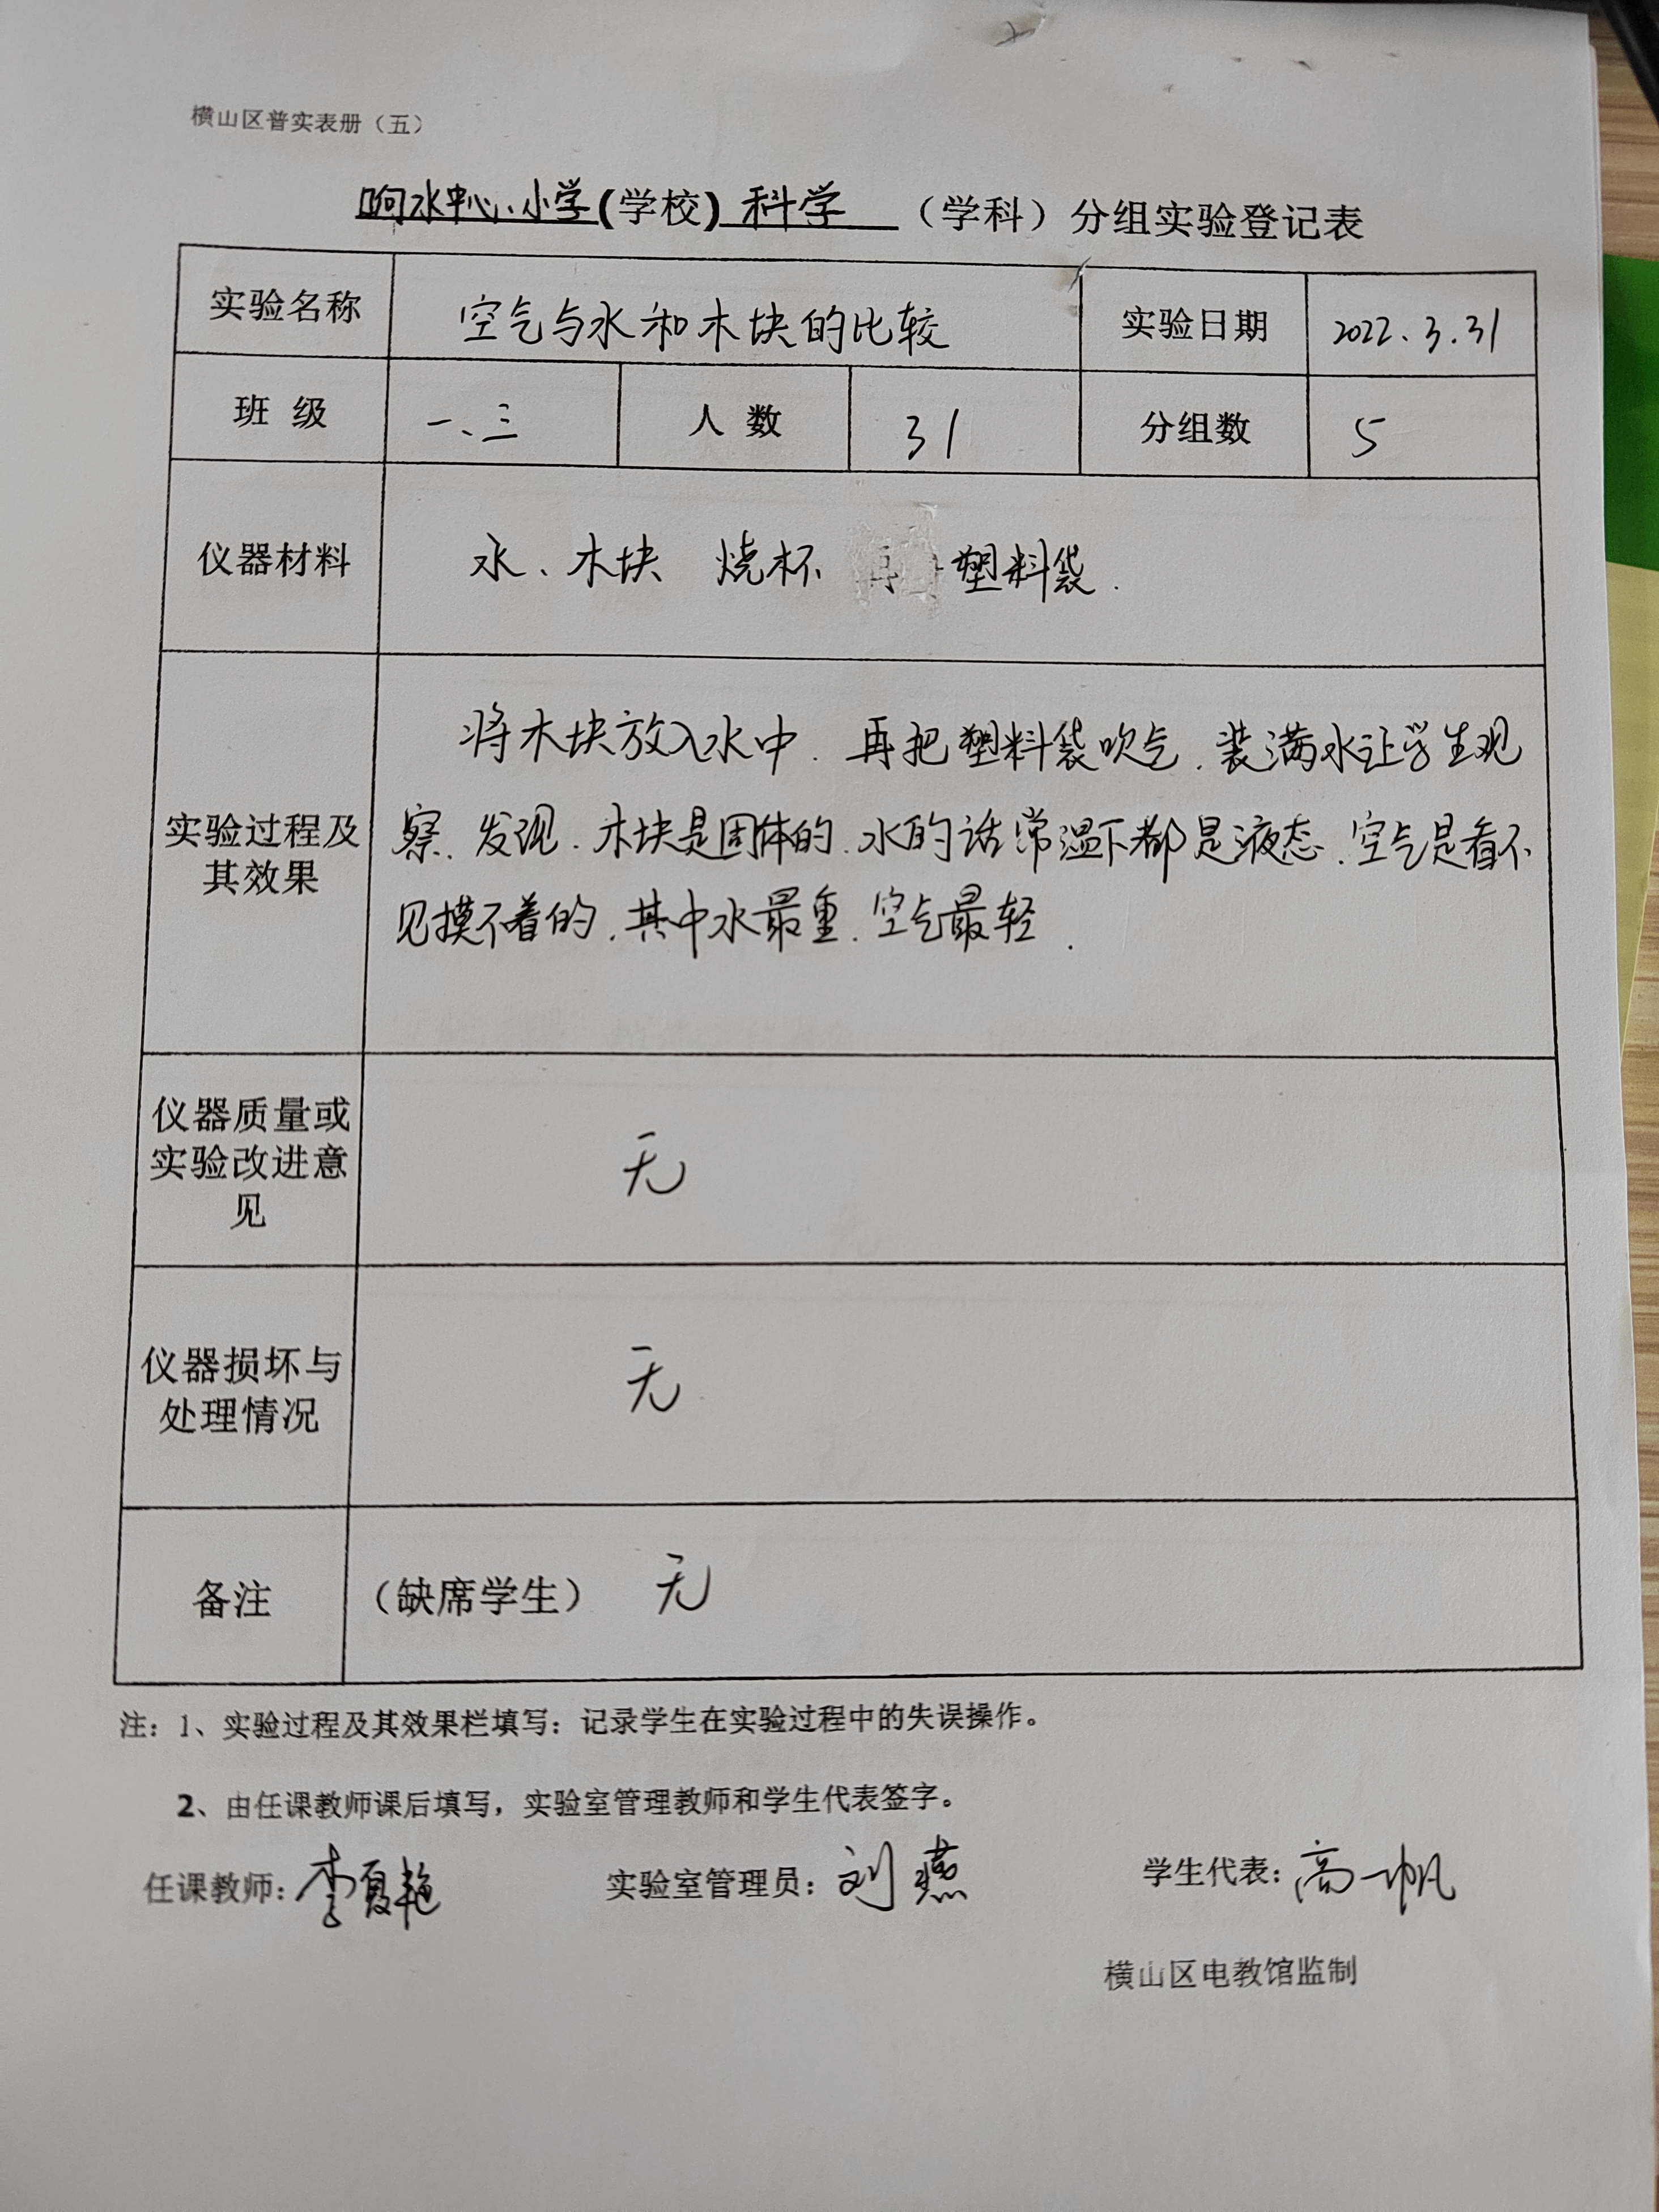 横山区普实表册（五）
响水中心小学(学校) 科学 （学科）分组实验登记表
实验名称 空气与水和木块的比较 实验日期 2022.3.31
班 级 一、三 人 数 31 分组数 5
仪器材料 水、木块 烧杯 塑料袋.
将木块放入水中.再把塑料袋吹气.装满水让学生观
实验过程及 察.发现.木块是固体的.水的话常温下都是液态.空气是看不
其效果
见摸不着的.其中水最重.空气最轻.
仪器质量或
实验改进意 无
见
仪器损坏与 无
处理情况
备注 （缺席学生） 无
注：1、实验过程及其效果栏填写：记录学生在实验过程中的失误操作。
2、由任课教师课后填写，实验室管理教师和学生代表签字。
任课教师：李夏艳 实验室管理员：刘燕 学生代表：高一帆
横山区电教馆监制